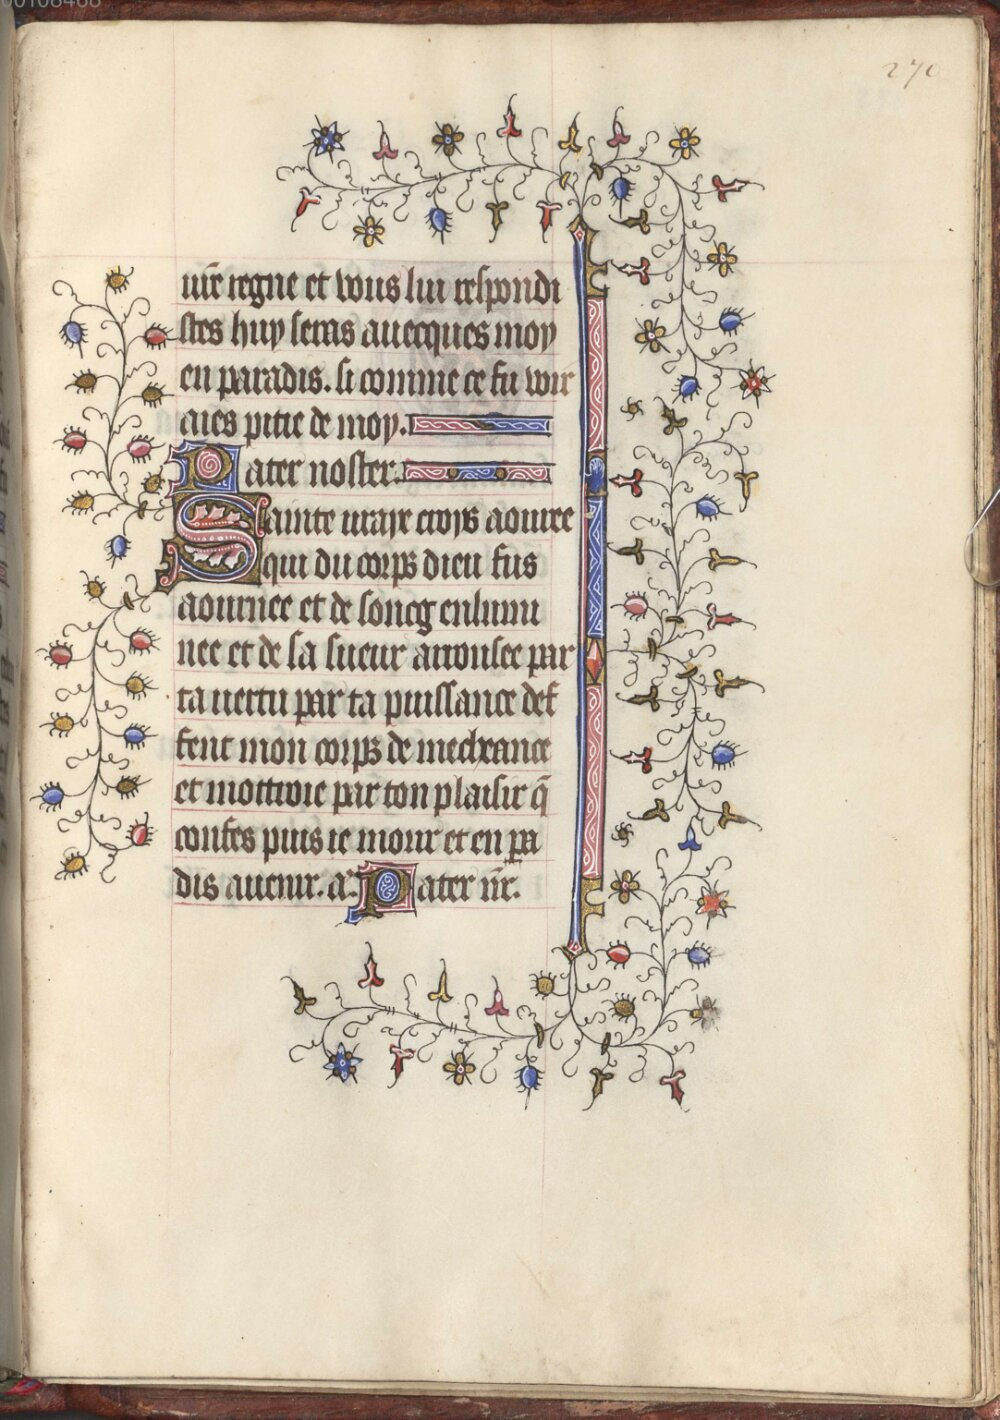 00108468
270
vr̄e regne et vous lui respondi
stes huy seras auecques moy
en paradis. si comme ce fu voir
aies pitie de moy.
Pater noster.
Sainte uraye croys aouree
qui du corps dieu fus
aournee et de soncg enlumi
nee et de la sueur arrousee par
ta uertu par ta puissance def
fent mon corps de mecheance
et mottroie par ton plaisir q̄
confes puis ie mour et en pa
dis auenir. a. Pater nr̄.